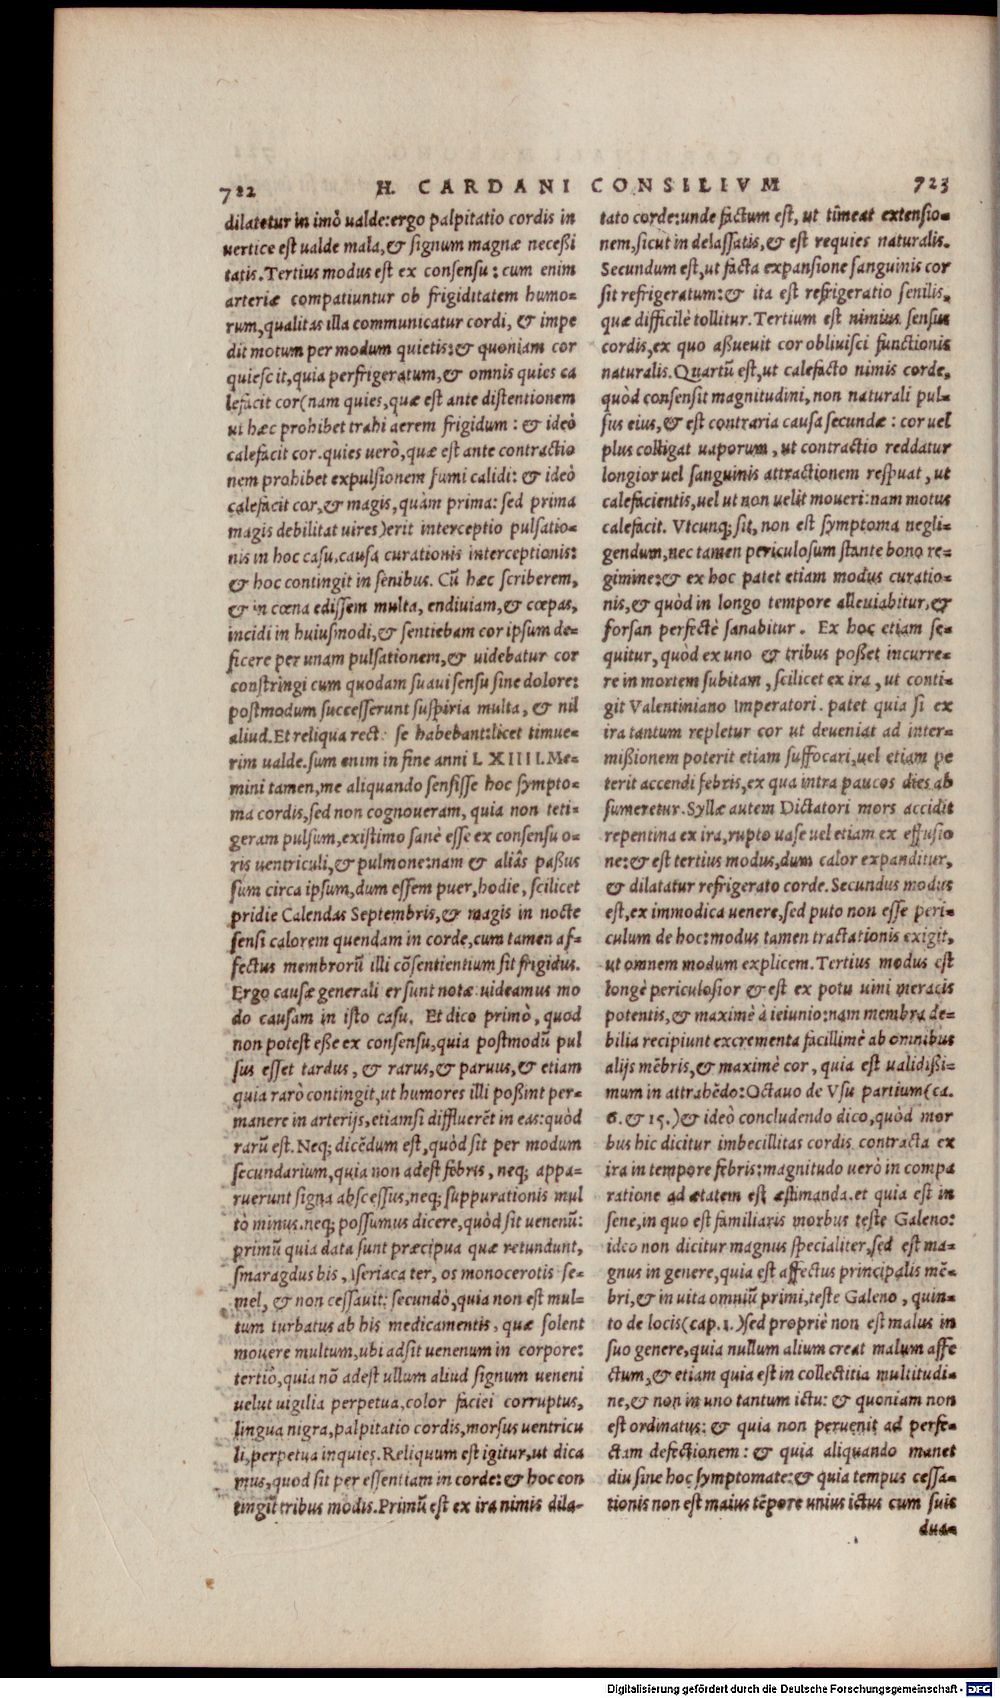 722 H. CARDANI CONSILIVM 723
dilatetur in imò ualde: ergo palpitatio cordis in
uertice est ualde mala, & signum magnæ necessi
tatis. Tertius modus est ex consensu: cum enim
arteriæ compatiuntur ob frigiditatem humo-
rum, qualitas illa communicatur cordi, & impe
dit motum per modum quietis: & quoniam cor
quiescit, quia perfrigeratum, & omnis quies ca
lefacit cor (nam quies, quæ est ante distentionem
ut hæc prohibet trahi aerem frigidum: & ideò
calefacit cor. quies uerò, quæ est ante contractio
nem prohibet expulsionem fumi calidi: & ideò
calefacit cor, & magis, quàm prima: sed prima
magis debilitat uires) erit interceptio pulsatio-
nis in hoc casu, causa curationis interceptionis:
& hoc contingit in senibus. Cũ hæc scriberem,
& in cœna edissem multa, endiuiam, & cœpas,
incidi in huiusmodi, & sentiebam cor ipsum de-
ficere per unam pulsationem, & uidebatur cor
constringi cum quodam suaui sensu sine dolore:
postmodum successerunt suspiria multa, & nil
aliud. Et reliqua rectè se habebant: licet timue-
rim ualde. sum enim in fine anni LXIIII. Me-
mini tamen, me aliquando sensisse hoc sympto-
ma cordis, sed non cognoueram, quia non teti-
geram pulsum, existimo sanè esse ex consensu o-
ris uentriculi, & pulmone: nam & aliâs passus
sum circa ipsum, dum essem puer, hodie, scilicet
pridie Calendas Septembris, & magis in nocte
sensi calorem quendam in corde, cum tamen af-
fectus membrorũ illi cõsentientium sit frigidus.
Ergo causæ generaliter sunt notæ: uideamus mo
do causam in isto casu. Et dico primò, quod
non potest esse ex consensu, quia postmodũ pul
sus esset tardus, & rarus, & paruus, & etiam
quia rarò contingit, ut humores illi possint per-
manere in arterijs, etiamsi diffluerẽt in eas: quòd
rarũ est. Neq; dicẽdum est, quòd sit per modum
secundarium, quia non adest febris, neq; appa-
ruerunt signa abscessus, neq; suppurationis mul
tò minus. neq; possumus dicere, quòd sit uenenũ:
primũ quia data sunt præcipua quæ retundunt,
smaragdus bis, theriaca ter, os monocerotis se-
mel, & non cessauit: secundò, quia non est mul-
tum turbatus ab his medicamentis, quæ solent
mouere multum, ubi adsit uenenum in corpore:
tertiò, quia nõ adest ullum aliud signum ueneni
uelut uigilia perpetua, color faciei corruptus,
lingua nigra, palpitatio cordis, morsus uentricu
li, perpetua inquies. Reliquum est igitur, ut dica
mus, quod sit per essentiam in corde: & hoc con
tingit tribus modis. Primũ est ex ira nimis dila-
tato corde: unde factum est, ut timeat extensio-
nem, sicut in delassatis, & est requies naturalis.
Secundum est, ut facta expansione sanguinis cor
sit refrigeratum: & ita est refrigeratio senilis,
quæ difficilè tollitur. Tertium est nimius sensus
cordis, ex quo assueuit cor obliuisci functionis
naturalis. Quartũ est, ut calefacto nimis corde,
quòd consensit magnitudini, non naturali pul-
sus eius, & est contraria causa secundæ: cor uel
plus colligat uaporum, ut contractio reddatur
longior uel sanguinis attractionem respuat, ut
calefacientis, uel ut non uelit moueri: nam motus
calefacit. Vtcunq; sit, non est symptoma negli-
gendum, nec tamen periculosum stante bono re-
gimine: & ex hoc patet etiam modus curatio-
nis, & quòd in longo tempore alleuiabitur, &
forsan perfectè sanabitur. Ex hoc etiam se-
quitur, quòd ex uno & tribus posset incurre-
re in mortem subitam, scilicet ex ira, ut conti-
git Valentiniano Imperatori. patet quia si ex
ira tantum repletur cor ut deueniat ad inter-
missionem poterit etiam suffocari, uel etiam po
terit accendi febris, ex qua intra paucos dies ab
sumeretur. Syllæ autem Dictatori mors accidit
repentina ex ira, rupto uase uel etiam ex effusio
ne: & est tertius modus, dum calor expanditur,
& dilatatur refrigerato corde. Secundus modus
est, ex immodica uenere, sed puto non esse peri-
culum de hoc: modus tamen tractationis exigit,
ut omnem modum explicem. Tertius modus est
longè periculosior & est ex potu uini meracis
potentis, & maximè à ieiunio: nam membra de-
bilia recipiunt excrementa facillimè ab omnibus
alijs mẽbris, & maximè cor, quia est ualidissi-
mum in attrahẽdo: Octauo de Vsu partium (ca.
6. & 15.) & ideò concludendo dico, quòd mor
bus hic dicitur imbecillitas cordis contracta ex
ira in tempore febris: magnitudo uerò in compa
ratione ad ætatem est æstimanda. et quia est in
sene, in quo est familiaris morbus teste Galeno:
ideo non dicitur magnus specialiter, sed est ma-
gnus in genere, quia est affectus principalis mẽ-
bri, & in uita omniũ primi, teste Galeno, quin-
to de locis (cap. 1.) sed propriè non est malus in
suo genere, quia nullum alium creat malum affe
ctum, & etiam quia est in collectitia multitudi-
ne, & non in uno tantum ictu: & quoniam non
est ordinatus: & quia non peruenit ad perfe-
ctam defectionem: & quia aliquando manet
diu sine hoc symptomate: & quia tempus cessa-
tionis non est maius tẽpore unius ictus cum suis
dua-
Digitalisierung gefördert durch die Deutsche Forschungsgemeinschaft - DFG